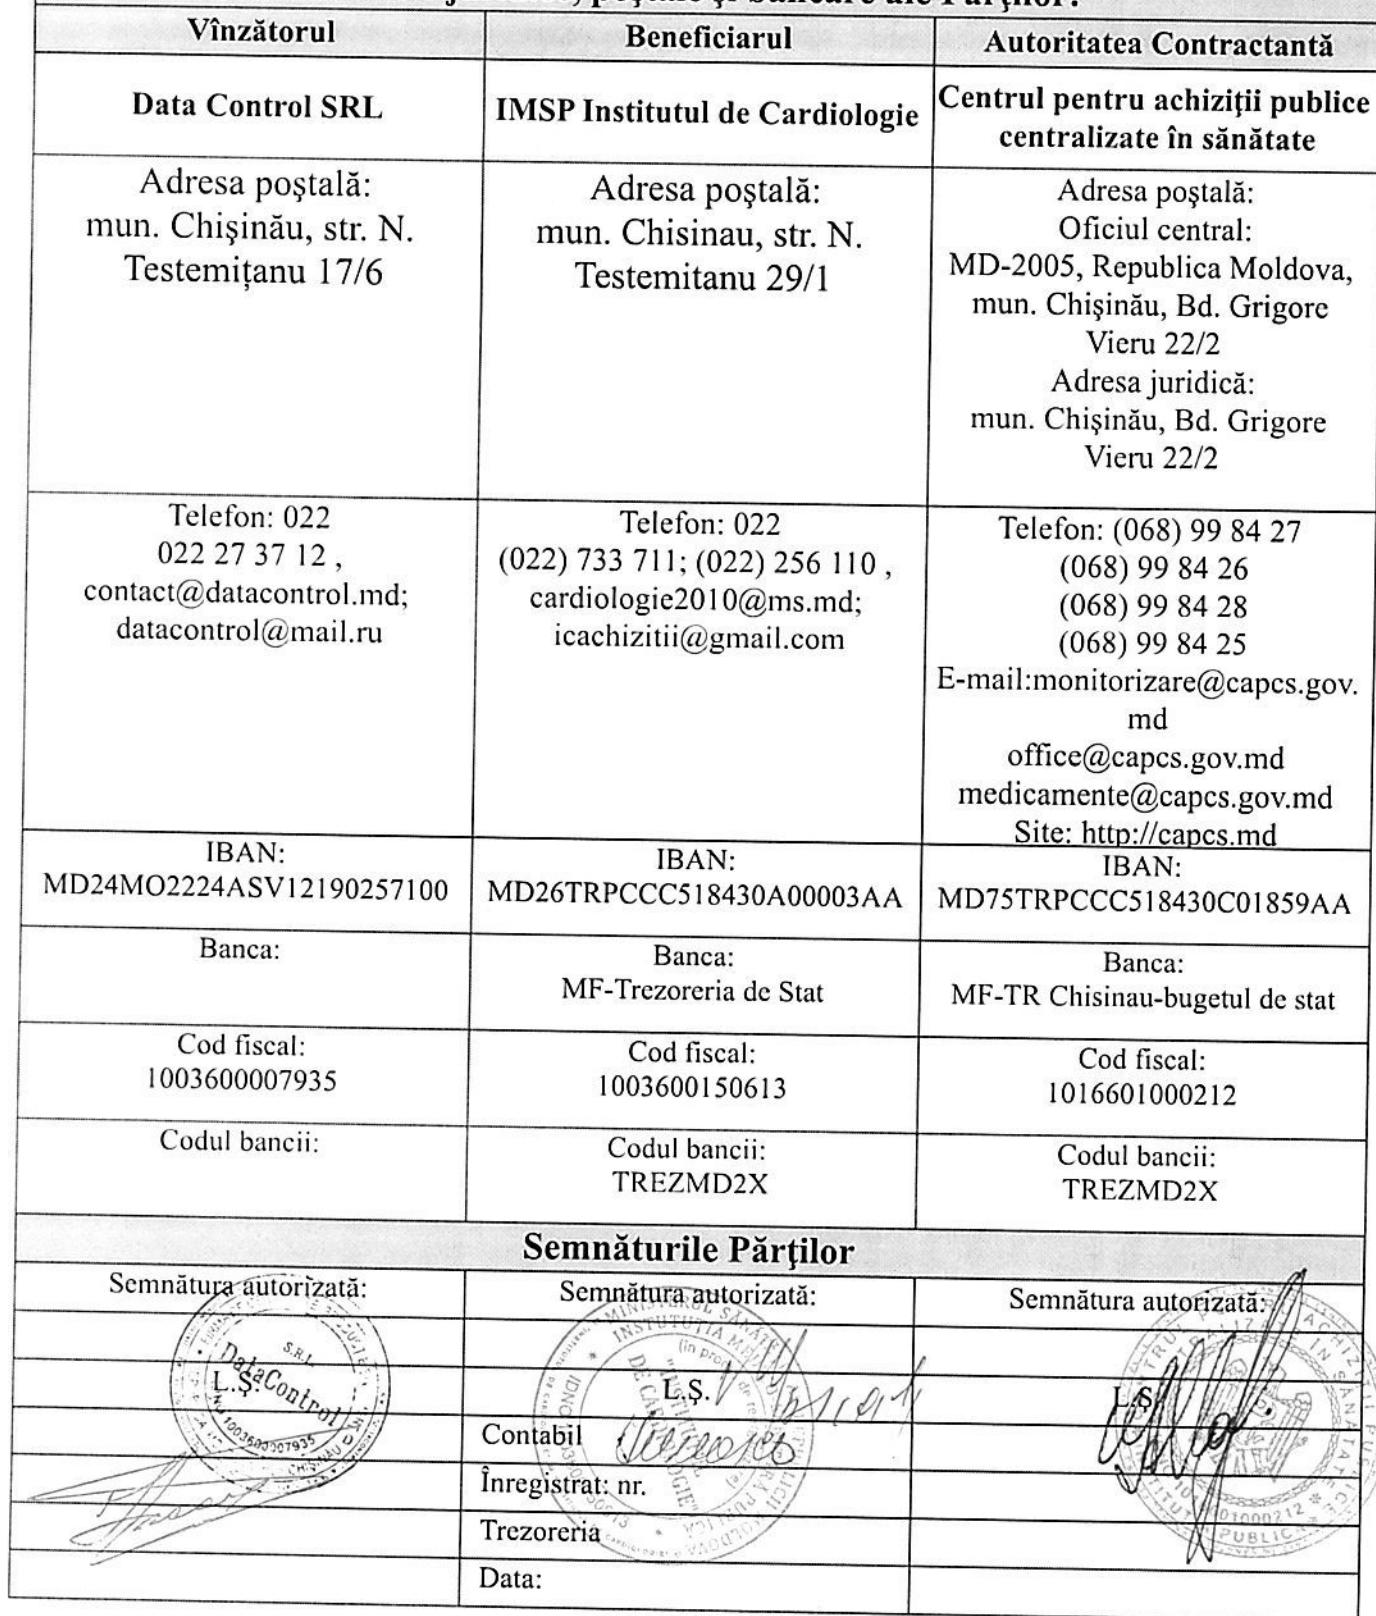 poștale și bancare ale Părților:
Vînzătorul
Beneficiarul
Autoritatea Contractantă
Data Control SRL
IMSP Institutul de Cardiologie
Centrul pentru achiziţii publice
centralizate în sănătate
Adresa poştală:
mun. Chişinău, str. N.
Testemițanu 17/6
Adresa poştală:
mun. Chisinau, str. N.
Testemitanu 29/1
Adresa poştală:
Oficiul central:
MD-2005, Republica Moldova,
mun. Chişinău, Bd. Grigore
Vieru 22/2
Adresa juridică:
mun. Chişinău, Bd. Grigore
Vieru 22/2
Telefon: 022
022 27 37 12 ,
contact@datacontrol.md;
datacontrol@mail.ru
Telefon: 022
(022) 733 711; (022) 256 110 ,
cardiologie2010@ms.md;
icachizitii@gmail.com
Telefon: (068) 99 84 27
(068) 99 84 26
(068) 99 84 28
(068) 99 84 25
E-mail:monitorizare@capcs.gov.
md
office@capcs.gov.md
medicamente@capcs.gov.md
Site: http://capcs.md
IBAN:
MD24MO2224ASV12190257100
IBAN:
MD26TRPCCC518430A00003AA
IBAN:
MD75TRPCCC518430C01859AA
Banca:
Banca:
MF-Trezoreria de Stat
Banca:
MF-TR Chisinau-bugetul de stat
Cod fiscal:
1003600007935
Cod fiscal:
1003600150613
Cod fiscal:
1016601000212
Codul bancii:
Codul bancii:
TREZMD2X
Codul bancii:
TREZMD2X
Semnăturile Părţilor
Semnătura autorizată:
Semnătura autorizată:
Semnătura autorizată:
S.R.L.
DataControl
1003600007935
L.Ş.
L.Ş.
L.Ş.
Contabil
Înregistrat: nr.
Trezoreria
Data: